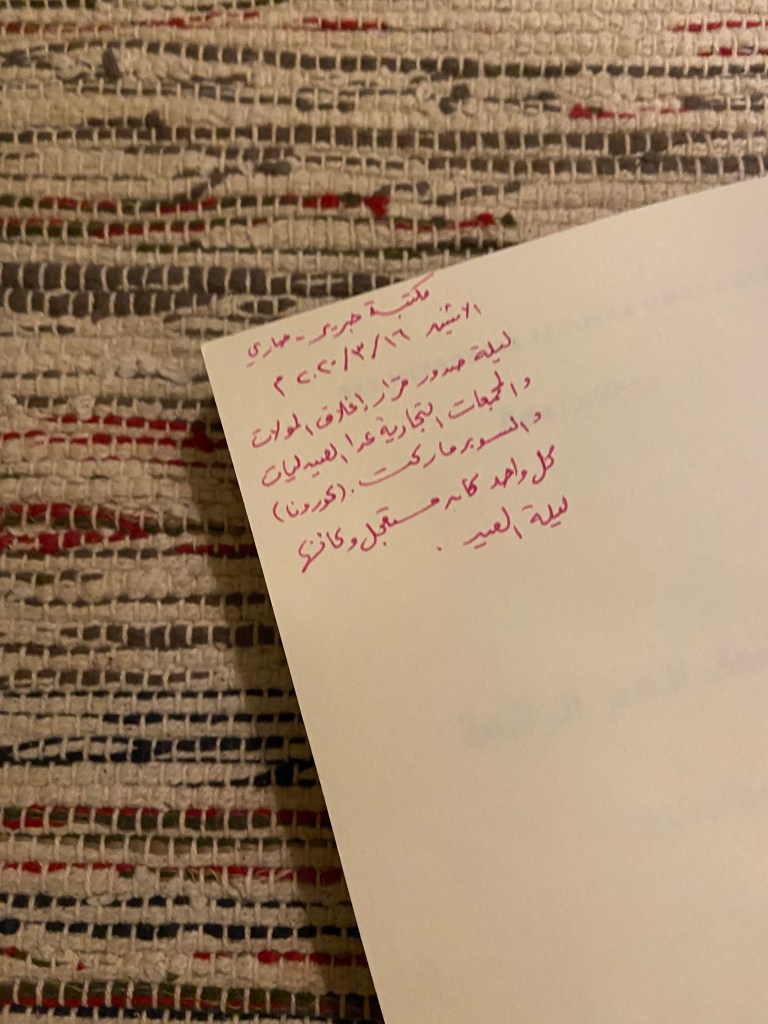 مكتبة جرير - صاري
الاثنين ١٦/٣/٢٠٢٠ م
ليلة صدور قرار إغلاق المولات
والمجمعات التجارية عدا الصيدليات
والسوبر ماركت. (كورونا)
كل واحد كان مستعجل وكانها
ليلة العيد.